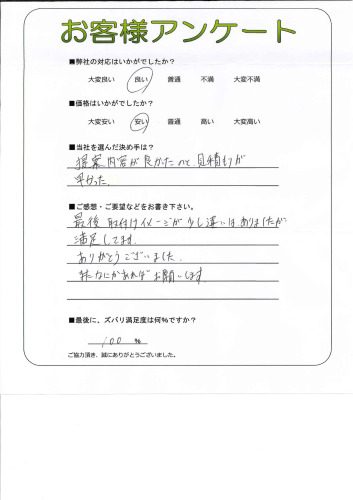 お客様アンケート
■弊社の対応はいかがでしたか？
大変良い 良い 普通 不満 大変不満
■価格はいかがでしたか？
大変安い 安い 普通 高い 大変高い
■当社を選んだ決め手は？
提案内容が良かったのと、見積もりが
早かった。
■ご感想・ご要望などをお書き下さい。
最後取付けイメージが少し違いはありましたが
満足してます。
ありがとうございました。
またなにかあればお願いします。
■最後に、ズバリ満足度は何％ですか？
100 ％
ご協力頂き、誠にありがとうございました。